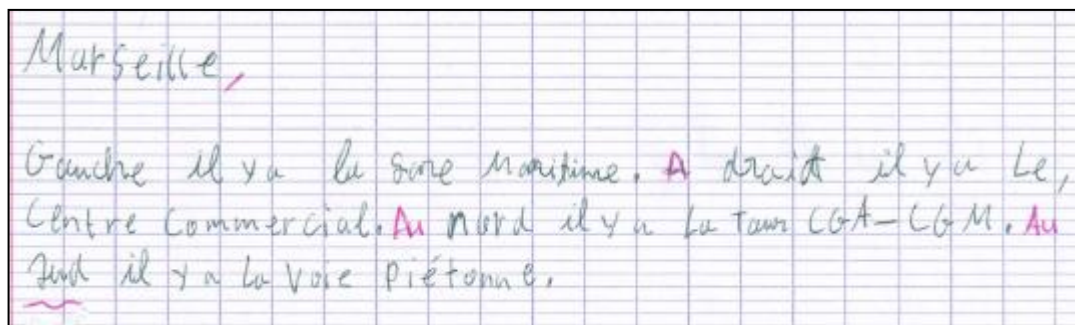 Marseille,
Gauche il y a la Gare Maritime. A droit il y a Le,
Centre Commercial. Au nord il y a La Tour CGA-CGM. Au
Sud il y a La Voie Piétonne.